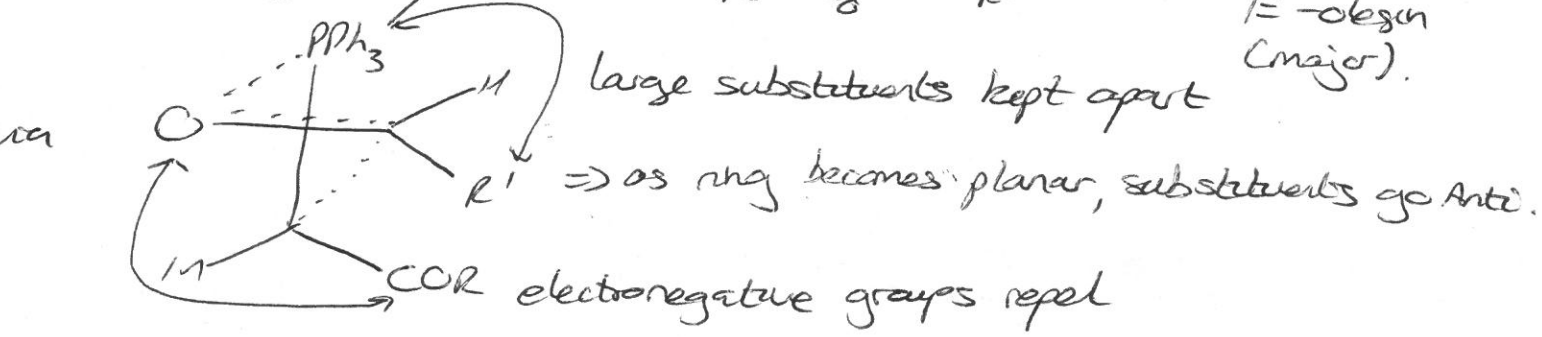 E-olefin
(major).
PPh3
H
large substituents kept apart
O
R' => as ring becomes planar, substituents go Anti.
H
COR electronegative groups repel